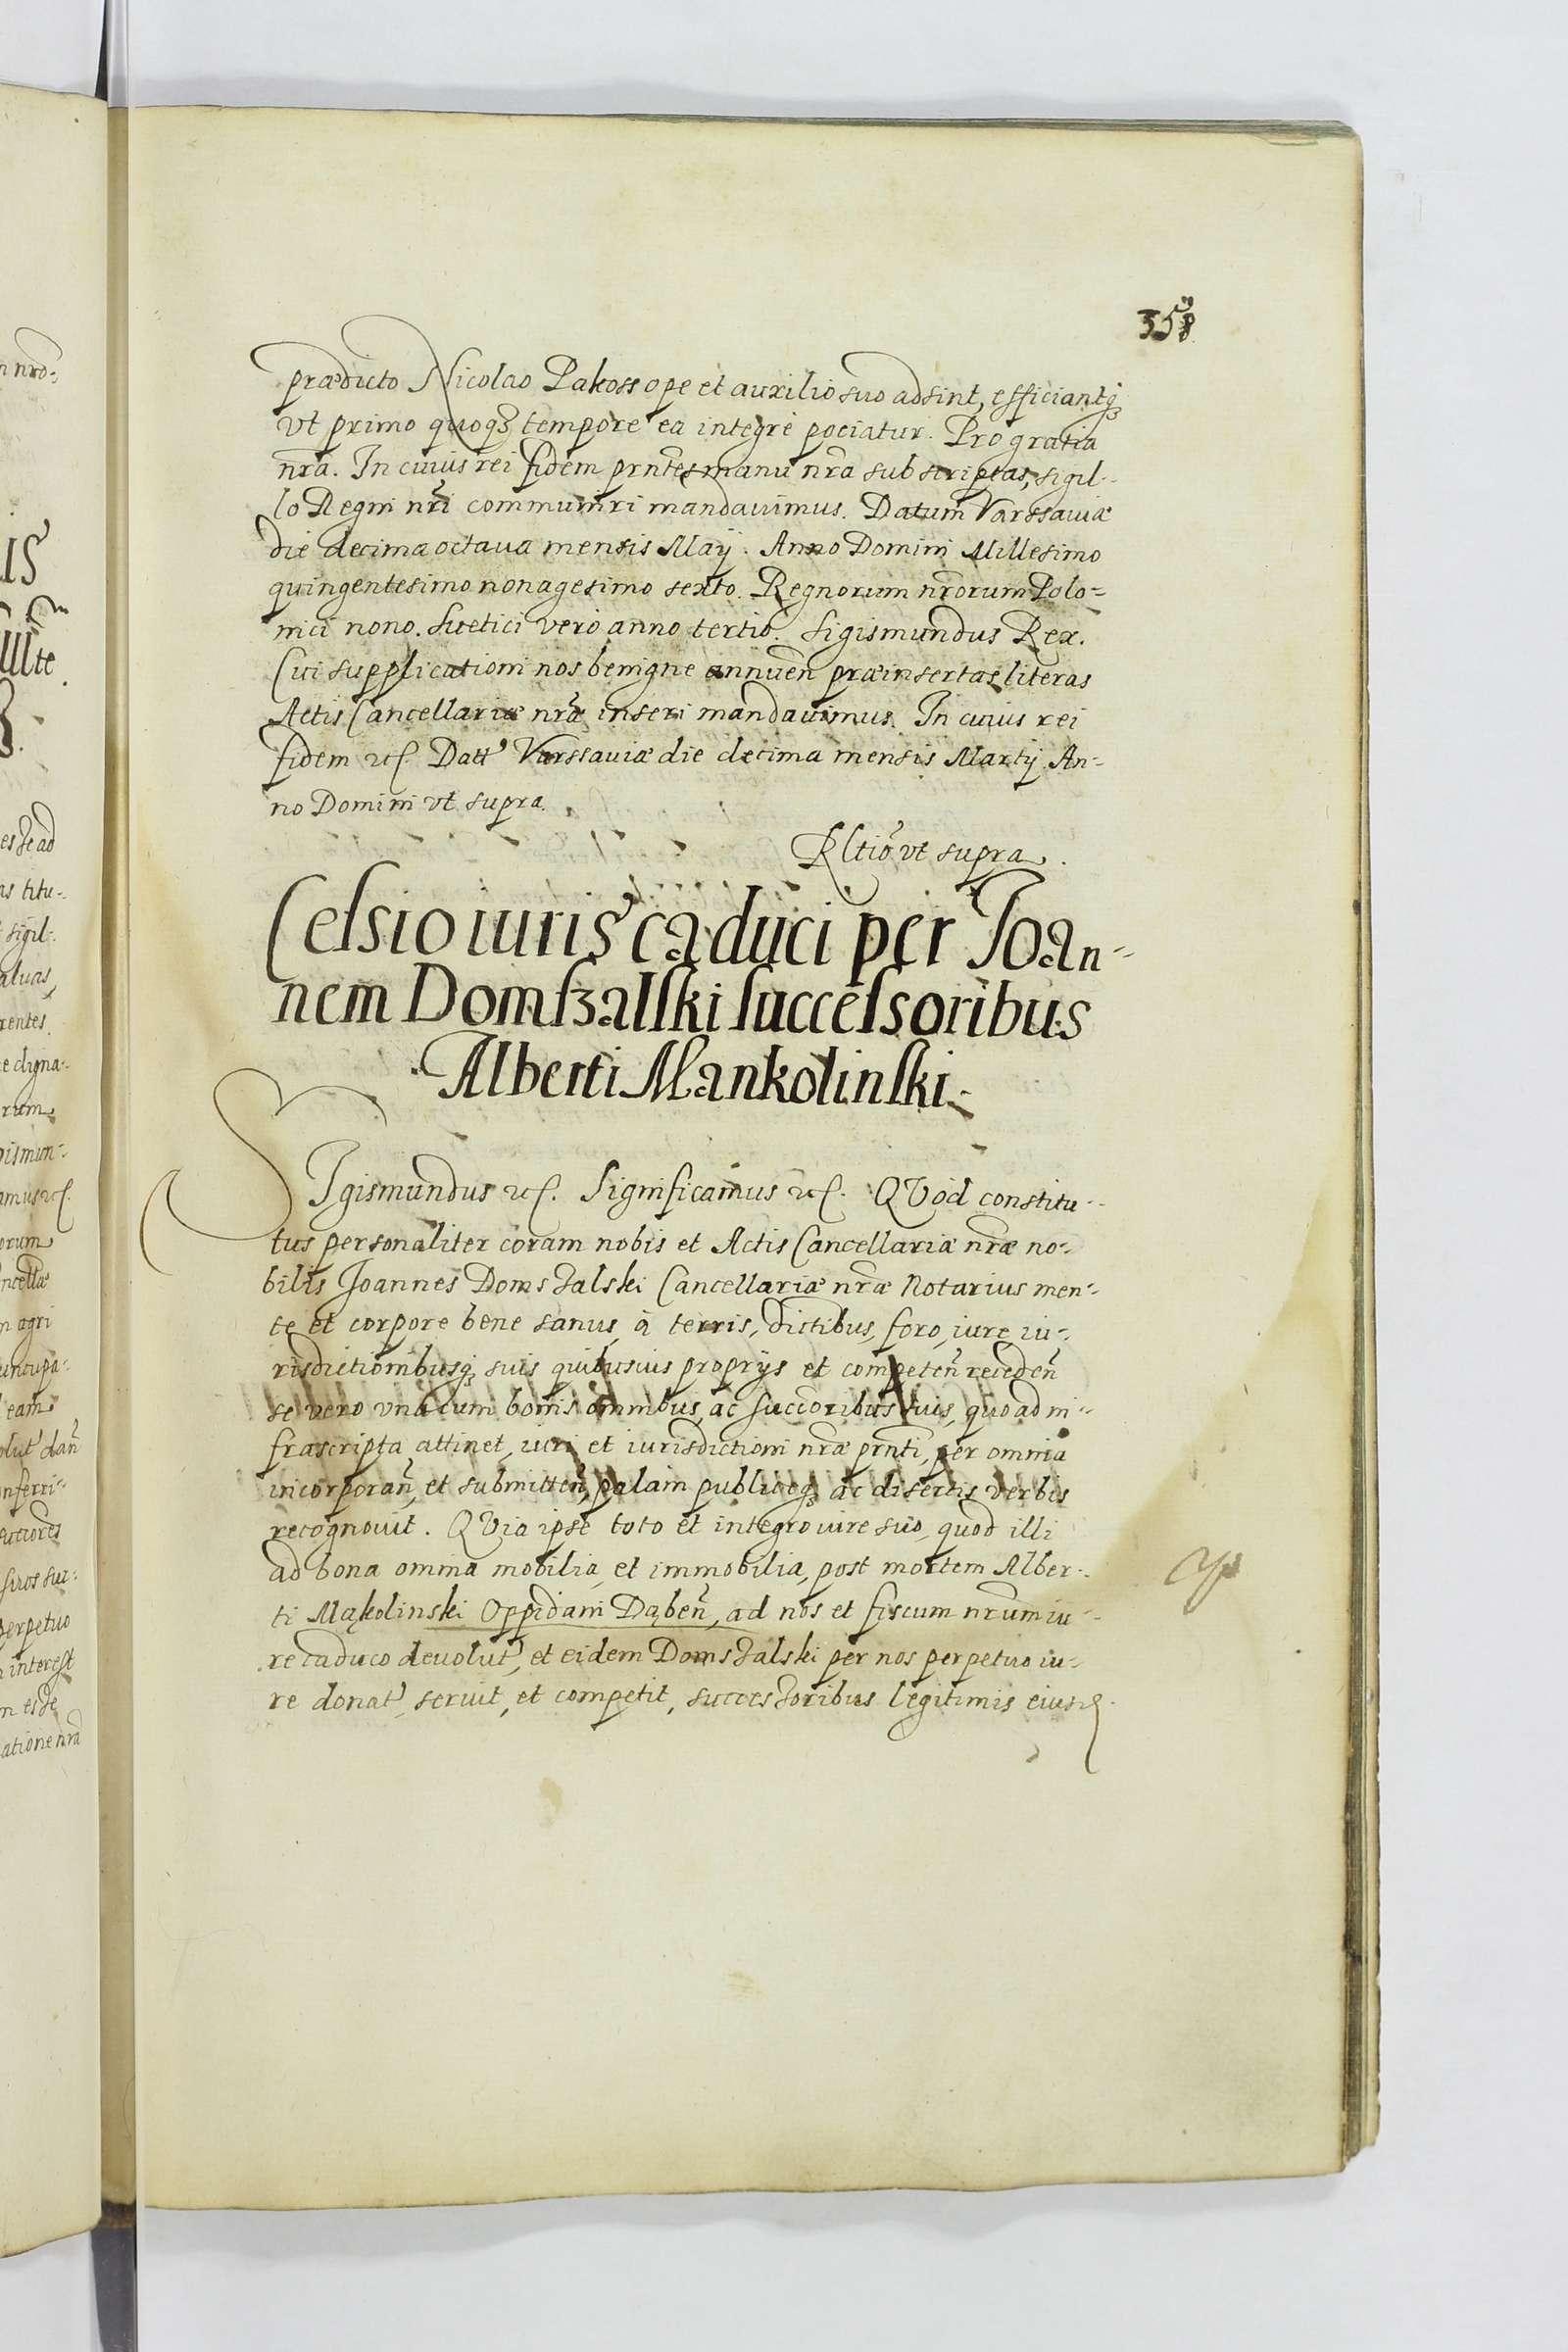 358
prædicto Nicolao Pakoss ope et auxilio suo adsint, efficiantq3
vt primo quoq3 tempore ea integrè pociatur. Pro gratia
nr̃a. In cuius rei fidem prñtes manu nr̃a subscriptas, sigil-
lo Regni nr̃i communiri mandauimus. Datum Varssauiæ
die decima octaua mensis Maij. Anno Domini Millesimo
quingentesimo nonagesimo sexto. Regnorum nr̃orum Polo=
nici nono. Suetici vero anno tertio. Sigismundus Rex.
Cui supplicationi nos benigne annuen̄ præinsertas literas
Actis Cancellariæ nr̃æ inseri mandauimus. In cuius rei
fidem etc. Datt' Varssauiæ die decima mensis Martij An-
no Domini vt supra.
Rltiõ vt supra.
Cessio iuris caduci per Joan-
nem Domszalski successoribus
Alberti Mankolinski.
Sigismundus etc. Significamus etc. QVod constitu-
tus personaliter coram nobis et Actis Cancellariæ nr̃æ no-
bilis Joannes Domszalski Cancellariæ nr̃æ Notarius men-
te et corpore bene sanus, à terris, dictibus, foro, iure iu-
risdictionibusq3 suis quibusuis proprijs et competen̄ receden̄
se vero vna cum bonis omnibus, ac succoribus suis, quo ad in-
frascripta attinet, iuri et iurisdictioni nr̃æ prñti, per omnia
incorporan̄, et submitten̄, palam publiceq3 ac disertis verbis
recognouit. QVia ipse toto et integro iure suo, quod illi
ad bona omnia mobilia, et immobilia, post mortem Alber-
ti Mąkolinski Oppidani Dąben̄, ad nos et fiscum nr̃um iu-
re caduco deuolut', et eidem Domszalski per nos perpetuo iu-
re donat', seruit, et competit, successoribus legitimis eiusd